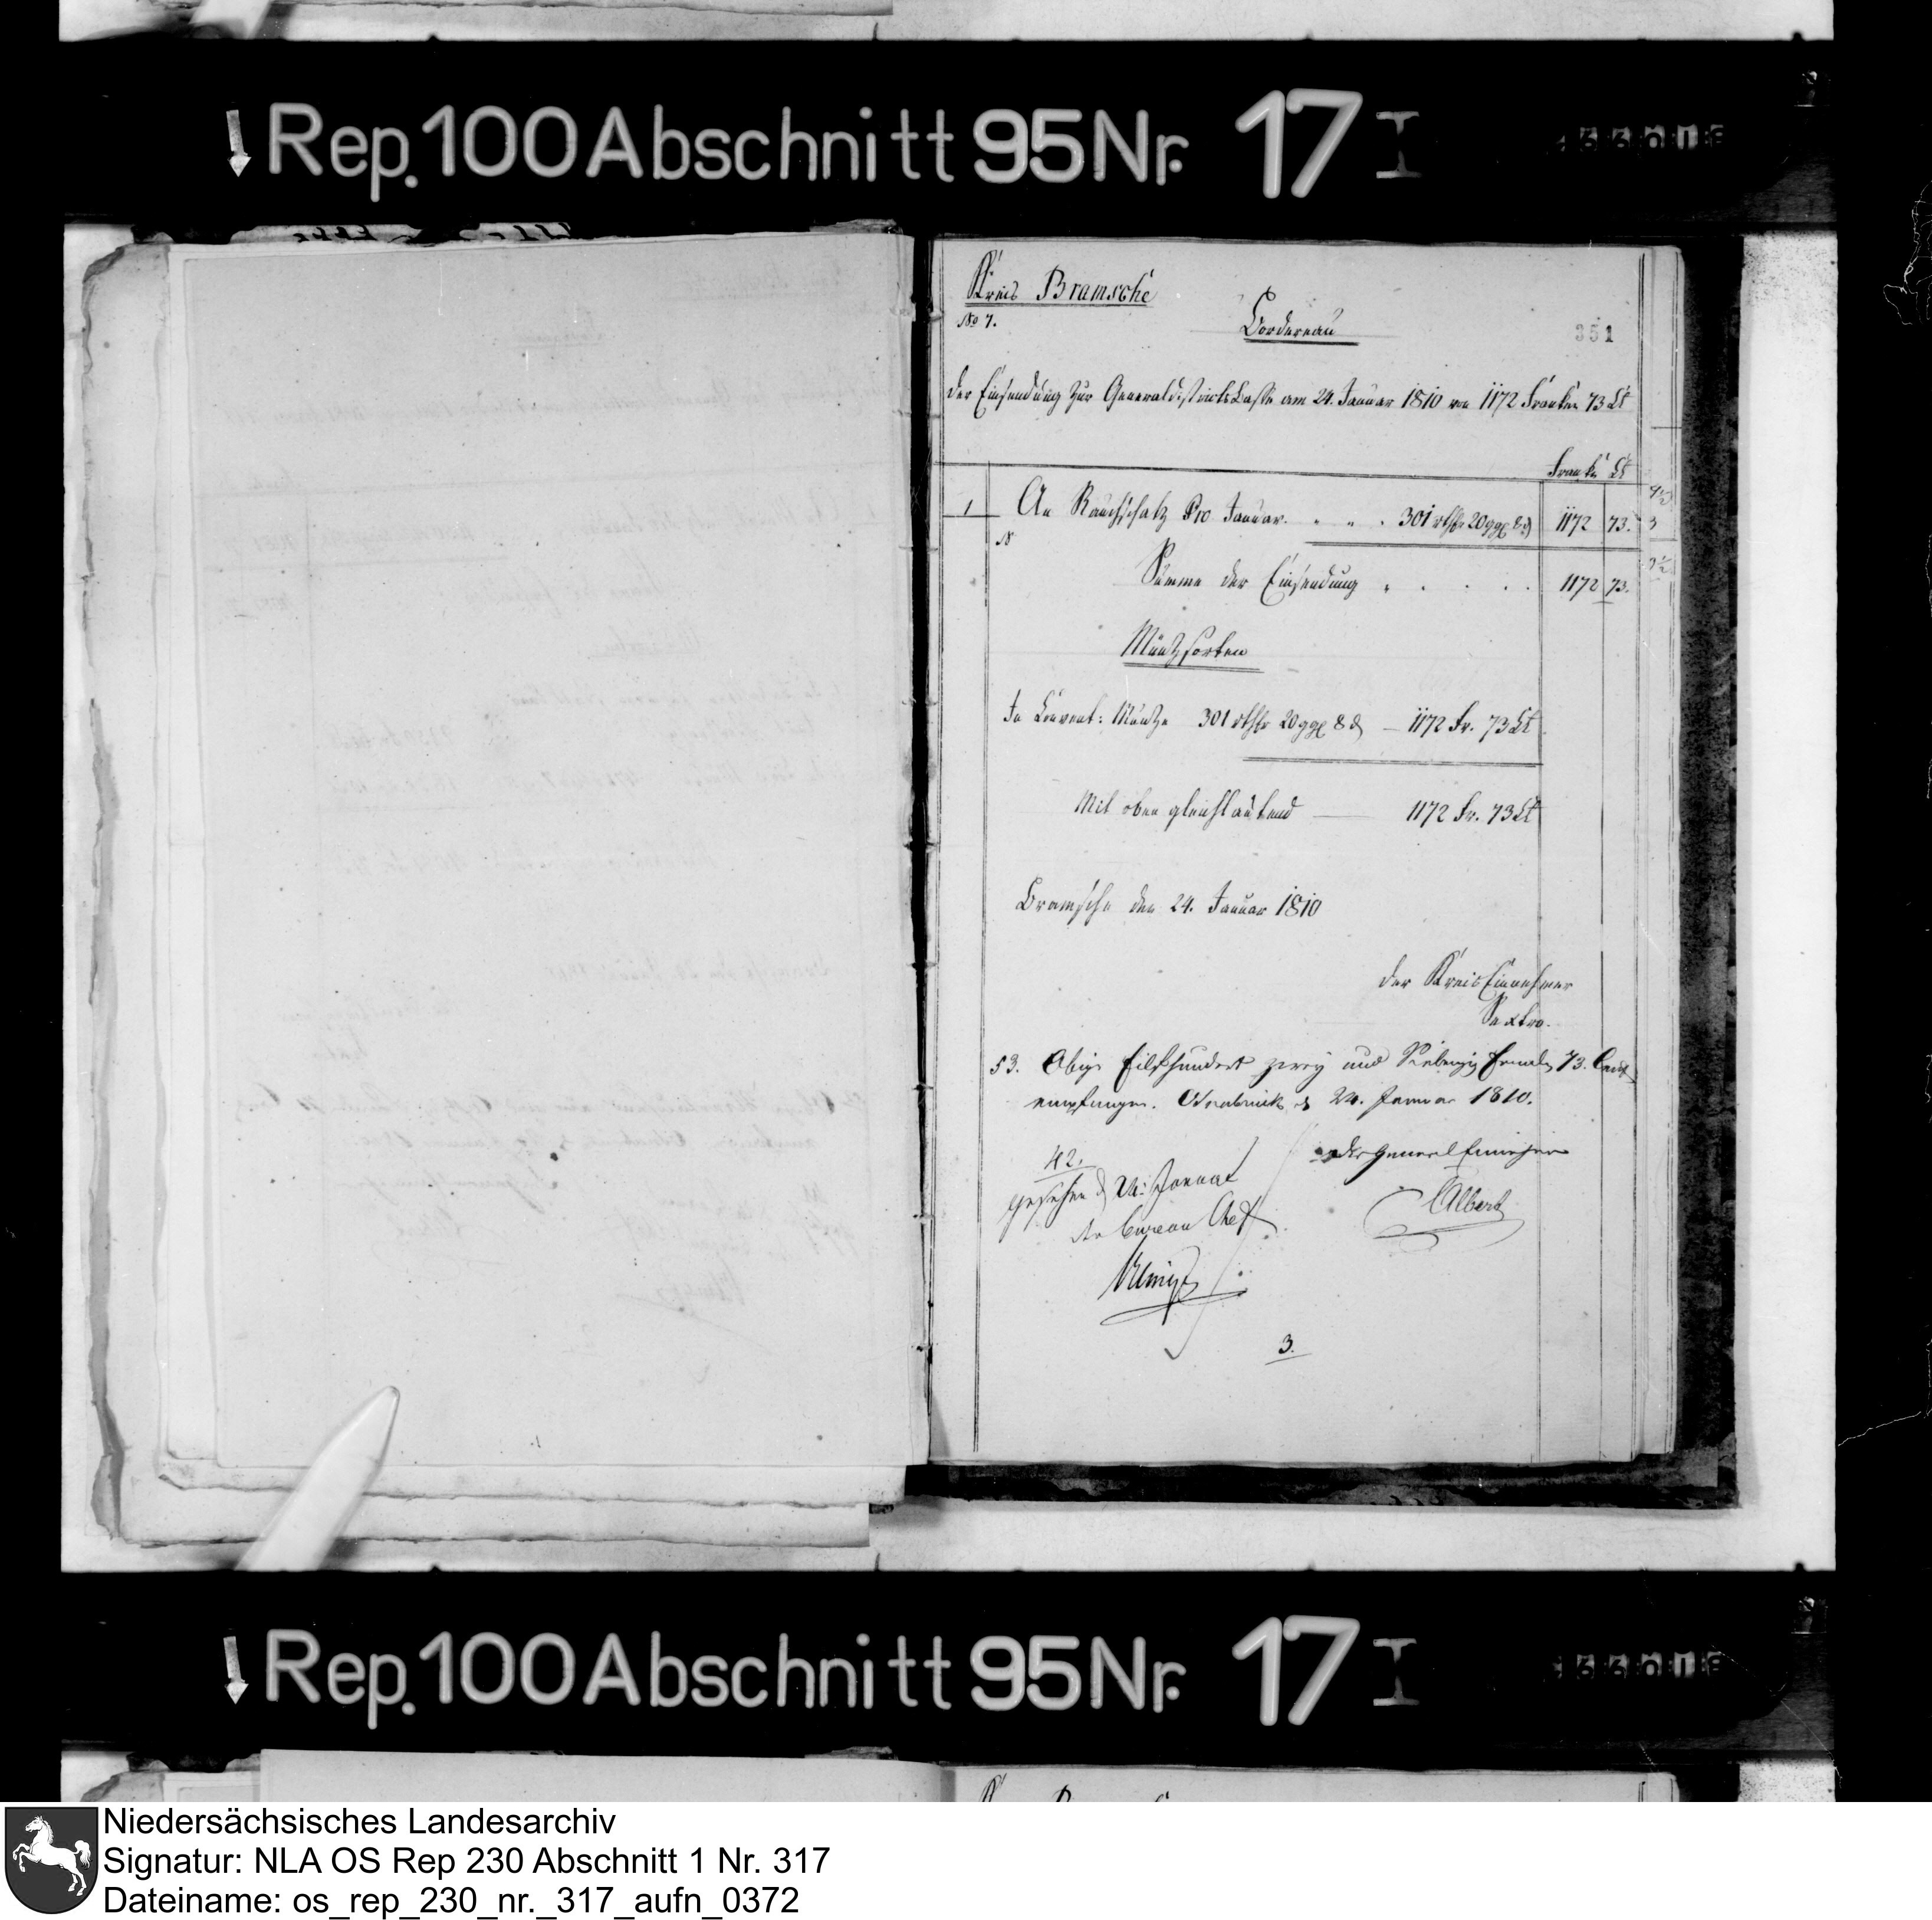 ↓ Rep. 100 Abschnitt 95 Nr. 17 I
Kreis Bramsche
No 7.
Bordereau
351
der Einsendung zur Generaldistrictskasse am 24. Januar 1810 von 1172 Franken 73 Ct
Frank. Ct
1 An Rauchschatz Pro Januar. 301 rthlr 20 ggr 8 d 1172 73.
Summe der Einsendung 1172 73.
Müntzsorten
In Convent: Müntze 301 rthlr 20 ggr 8 d — 1172 Fr. 73 Ct
Mit oben gleichlautend — 1172 Fr. 73 Ct
Bramsche den 24. Januar 1810
Der Kreis Einnehmer
Saxtro.
53. Obige Eilfhundert zwey und Siebenzig Franken 73. Cent
empfangen. Osnabrück d 24. Januar 1810.
der General Einnehmer
Albert
42.
gesehen d 24: Januar
der Bureau Chef
3.
↓ Rep. 100 Abschnitt 95 Nr. 17 I
Niedersächsisches Landesarchiv
Signatur: NLA OS Rep 230 Abschnitt 1 Nr. 317
Dateiname: os_rep_230_nr._317_aufn_0372